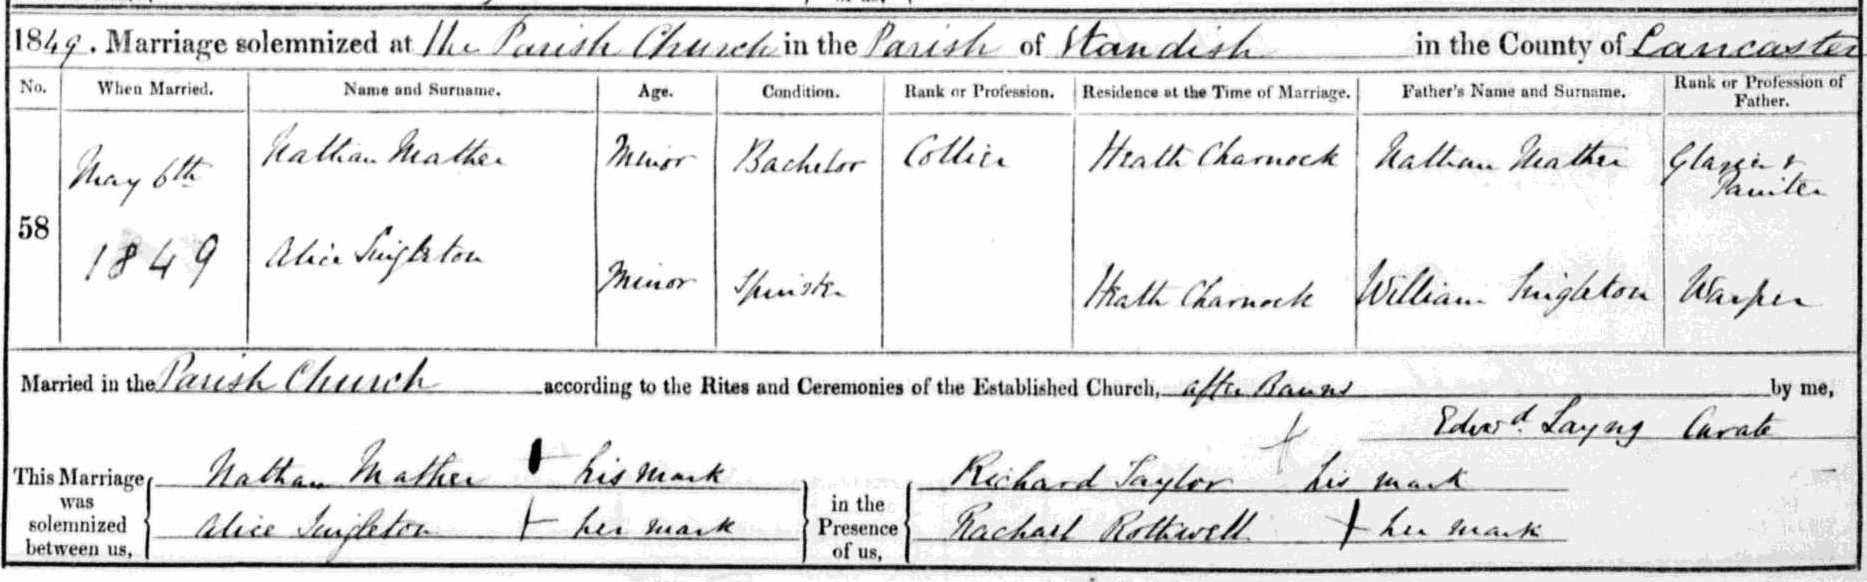 1849. Marriage solemnized at the Parish Church in the Parish of Standish in the County of Lancaster
No. When Married. Name and Surname. Age. Condition. Rank or Profession. Residence at the Time of Marriage. Father's Name and Surname. Rank or Profession of Father.
58
May 6th 1849
Nathan Mather Minor Bachelor Collier Heath Charnock Nathan Mather Glazier & Painter
Alice Singleton Minor Spinster Heath Charnock William Singleton Warper
Married in the Parish Church according to the Rites and Ceremonies of the Established Church, after Banns by me,
Edwd. Layng Curate
This Marriage was solemnized between us,
Nathan Mather + his mark
Alice Singleton + her mark
in the Presence of us,
Richard Taylor + his mark
Rachael Rothwell + her mark